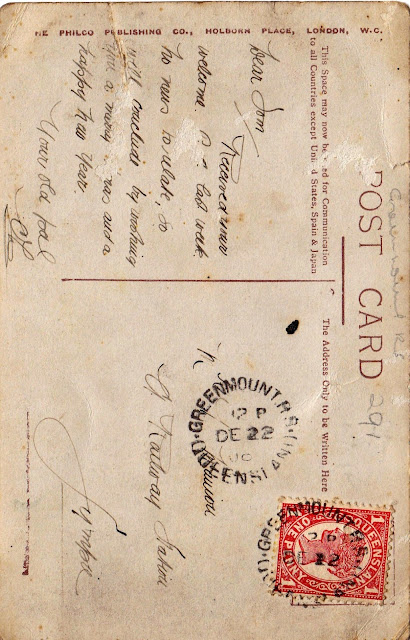 THE PHILCO PUBLISHING CO., HOLBORN PLACE, LONDON, W.C.
This Space may now be used for Communication
to all Countries except United States, Spain & Japan
POST CARD
The Address Only to be Written Here
Greenmount R.S
291
Dear Tom
Received your
welcome P.C. last week.
No news to relate, so
will conclude by wishing
you a merry Xmas and a
happy New Year.
Your old pal
M
Railway Station
Gympie
GREENMOUNT.R.S
12 P
DE 22
06
QUEENSLAND
QUEENSLAND
ONE PENNY
1
1
GREENMOUNT.R.S
DE 22